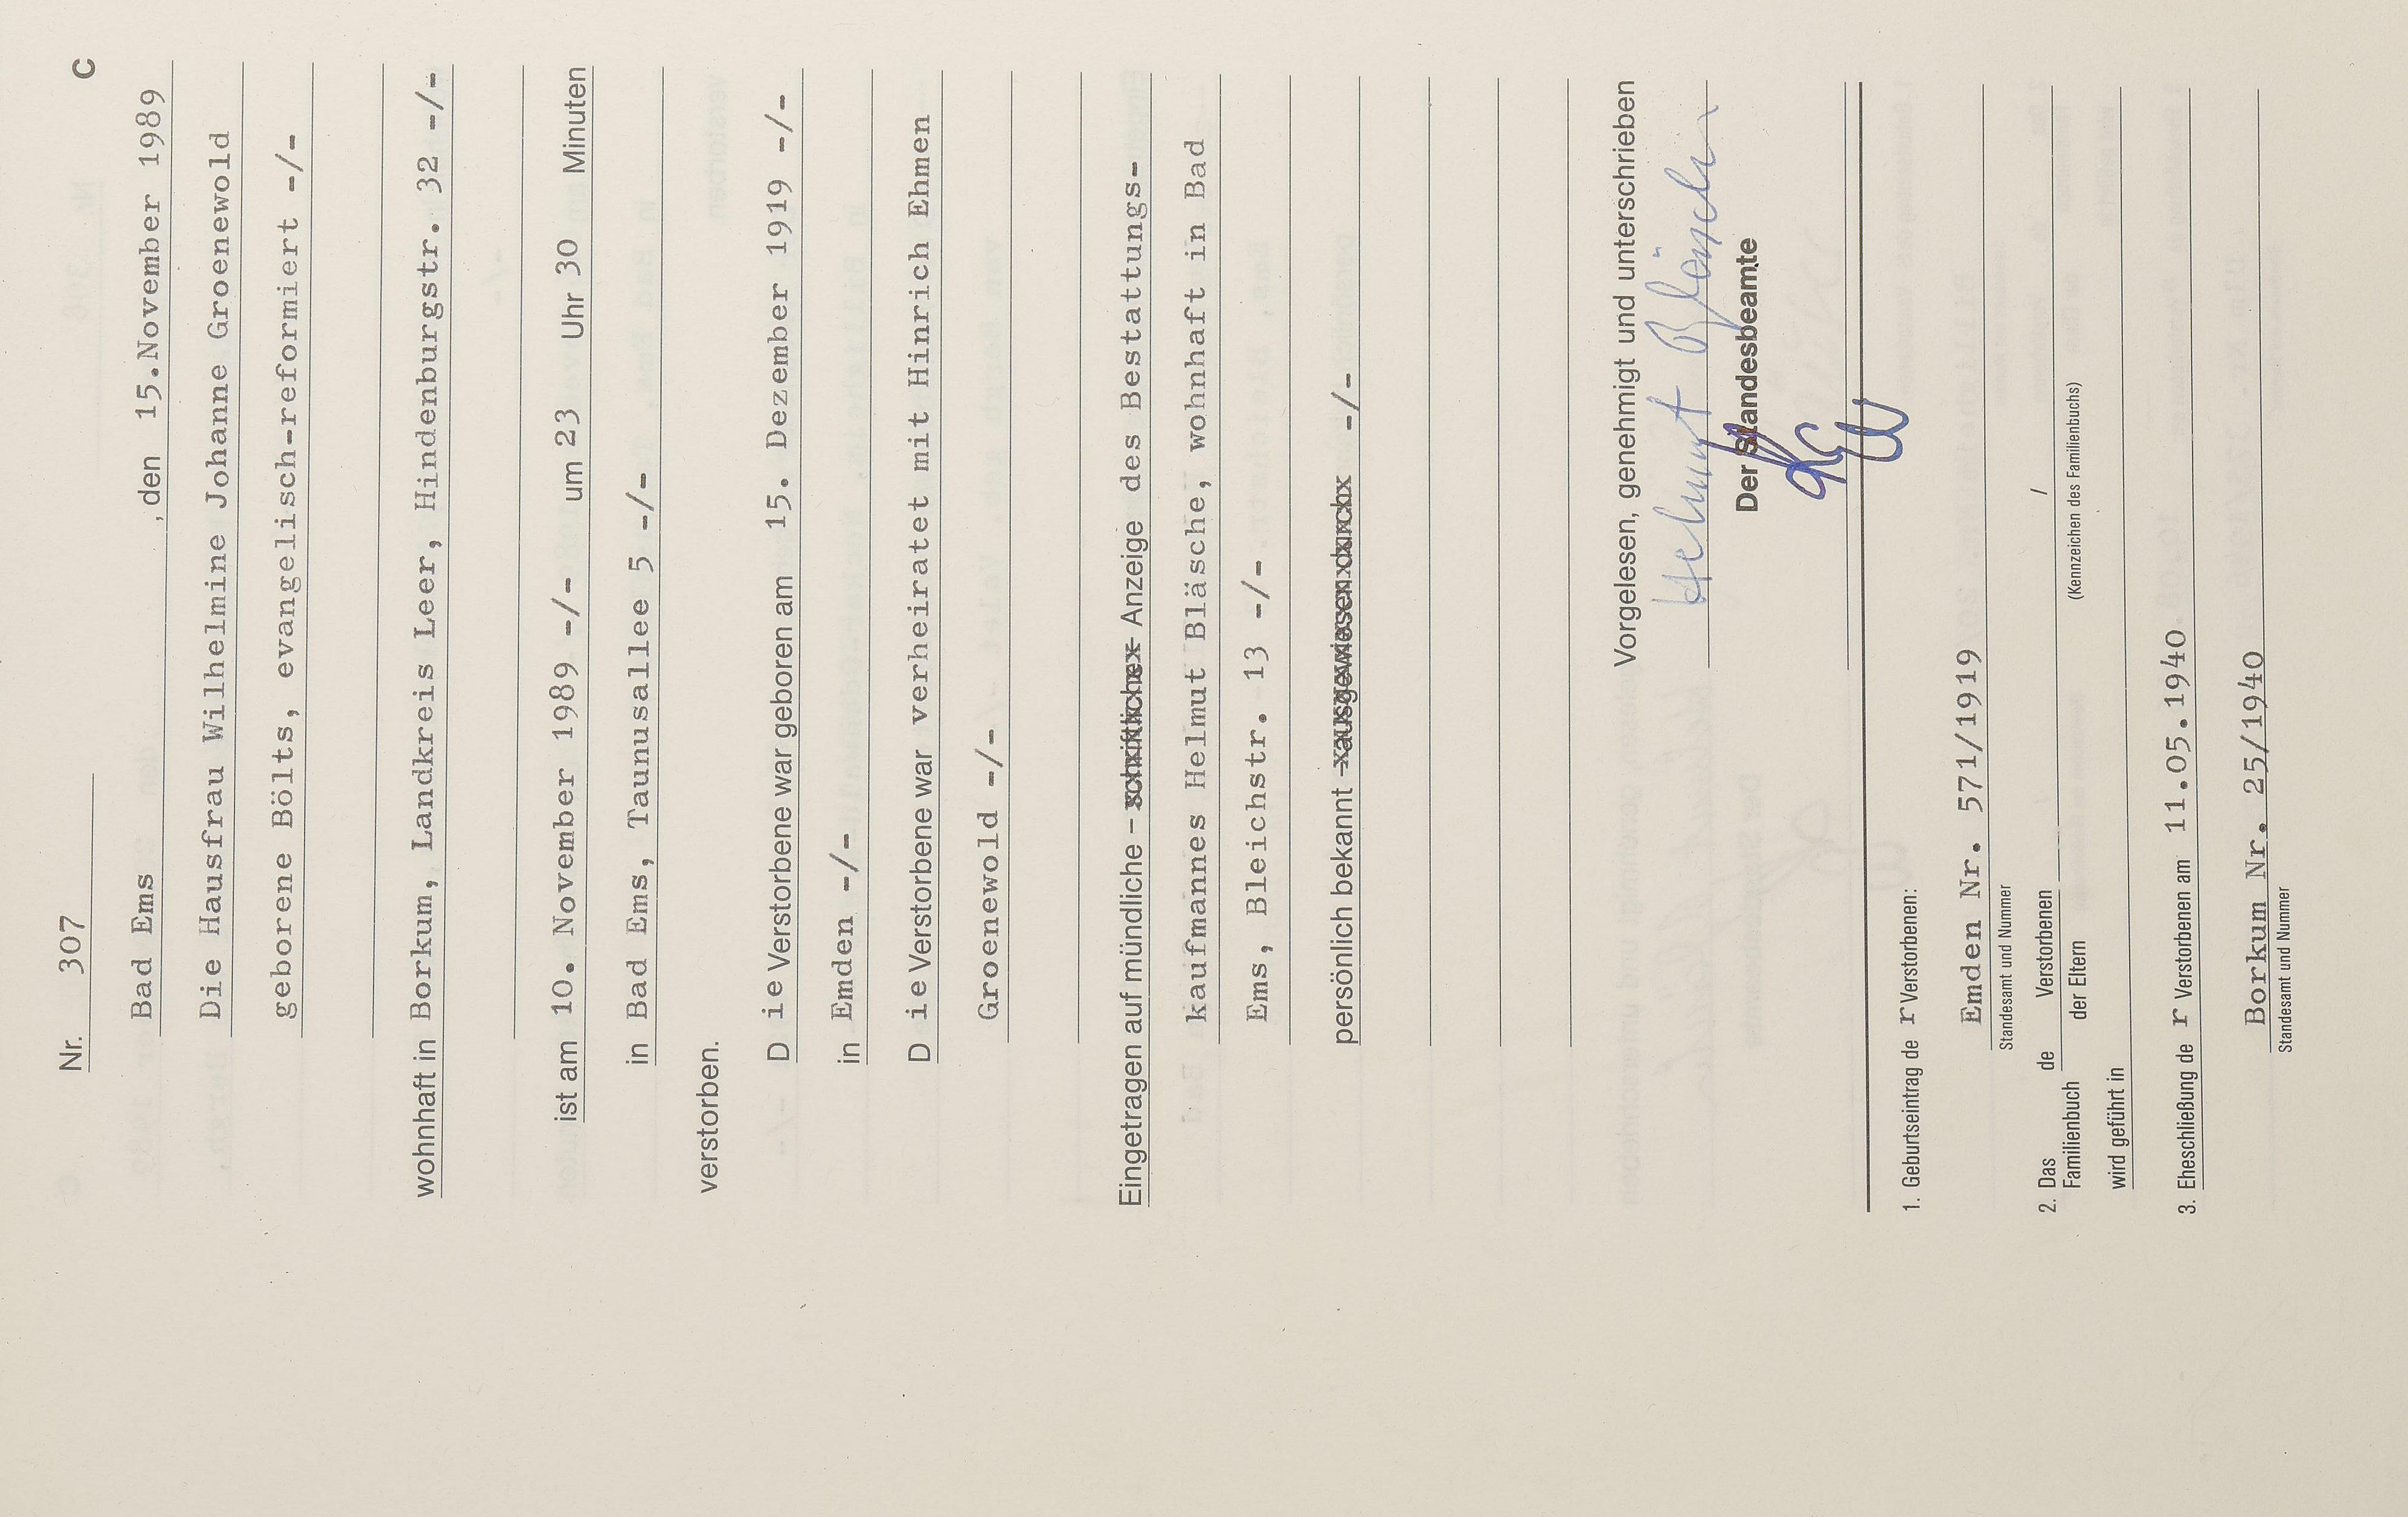 C
Nr. 307
Bad Ems , den 15.November 1989
Die Hausfrau Wilhelmine Johanne Groenewold
geborene Bölts, evangelisch-reformiert -/-
wohnhaft in Borkum, Landkreis Leer, Hindenburgstr. 32 -/-
ist am 10. November 1989 -/- um 23 Uhr 30 Minuten
in Bad Ems, Taunusallee 5 -/-
verstorben.
D ie Verstorbene war geboren am 15. Dezember 1919 -/-
in Emden -/-
D ie Verstorbene war verheiratet mit Hinrich Ehmen
Groenewold -/-
Eingetragen auf mündliche – schriftliche – Anzeige des Bestattungs-
kaufmannes Helmut Bläsche, wohnhaft in Bad
Ems, Bleichstr. 13 -/-
persönlich bekannt – ausgewiesen durch -/-
Vorgelesen, genehmigt und unterschrieben
Helmut Bläsche
Der Standesbeamte
1. Geburtseintrag de r Verstorbenen:
Emden Nr. 571/1919
Standesamt und Nummer
2. Das Familienbuch de Verstorbenen /
der Eltern (Kennzeichen des Familienbuchs)
wird geführt in
3. Eheschließung de r Verstorbenen am 11.05.1940
Borkum Nr. 25/1940
Standesamt und Nummer